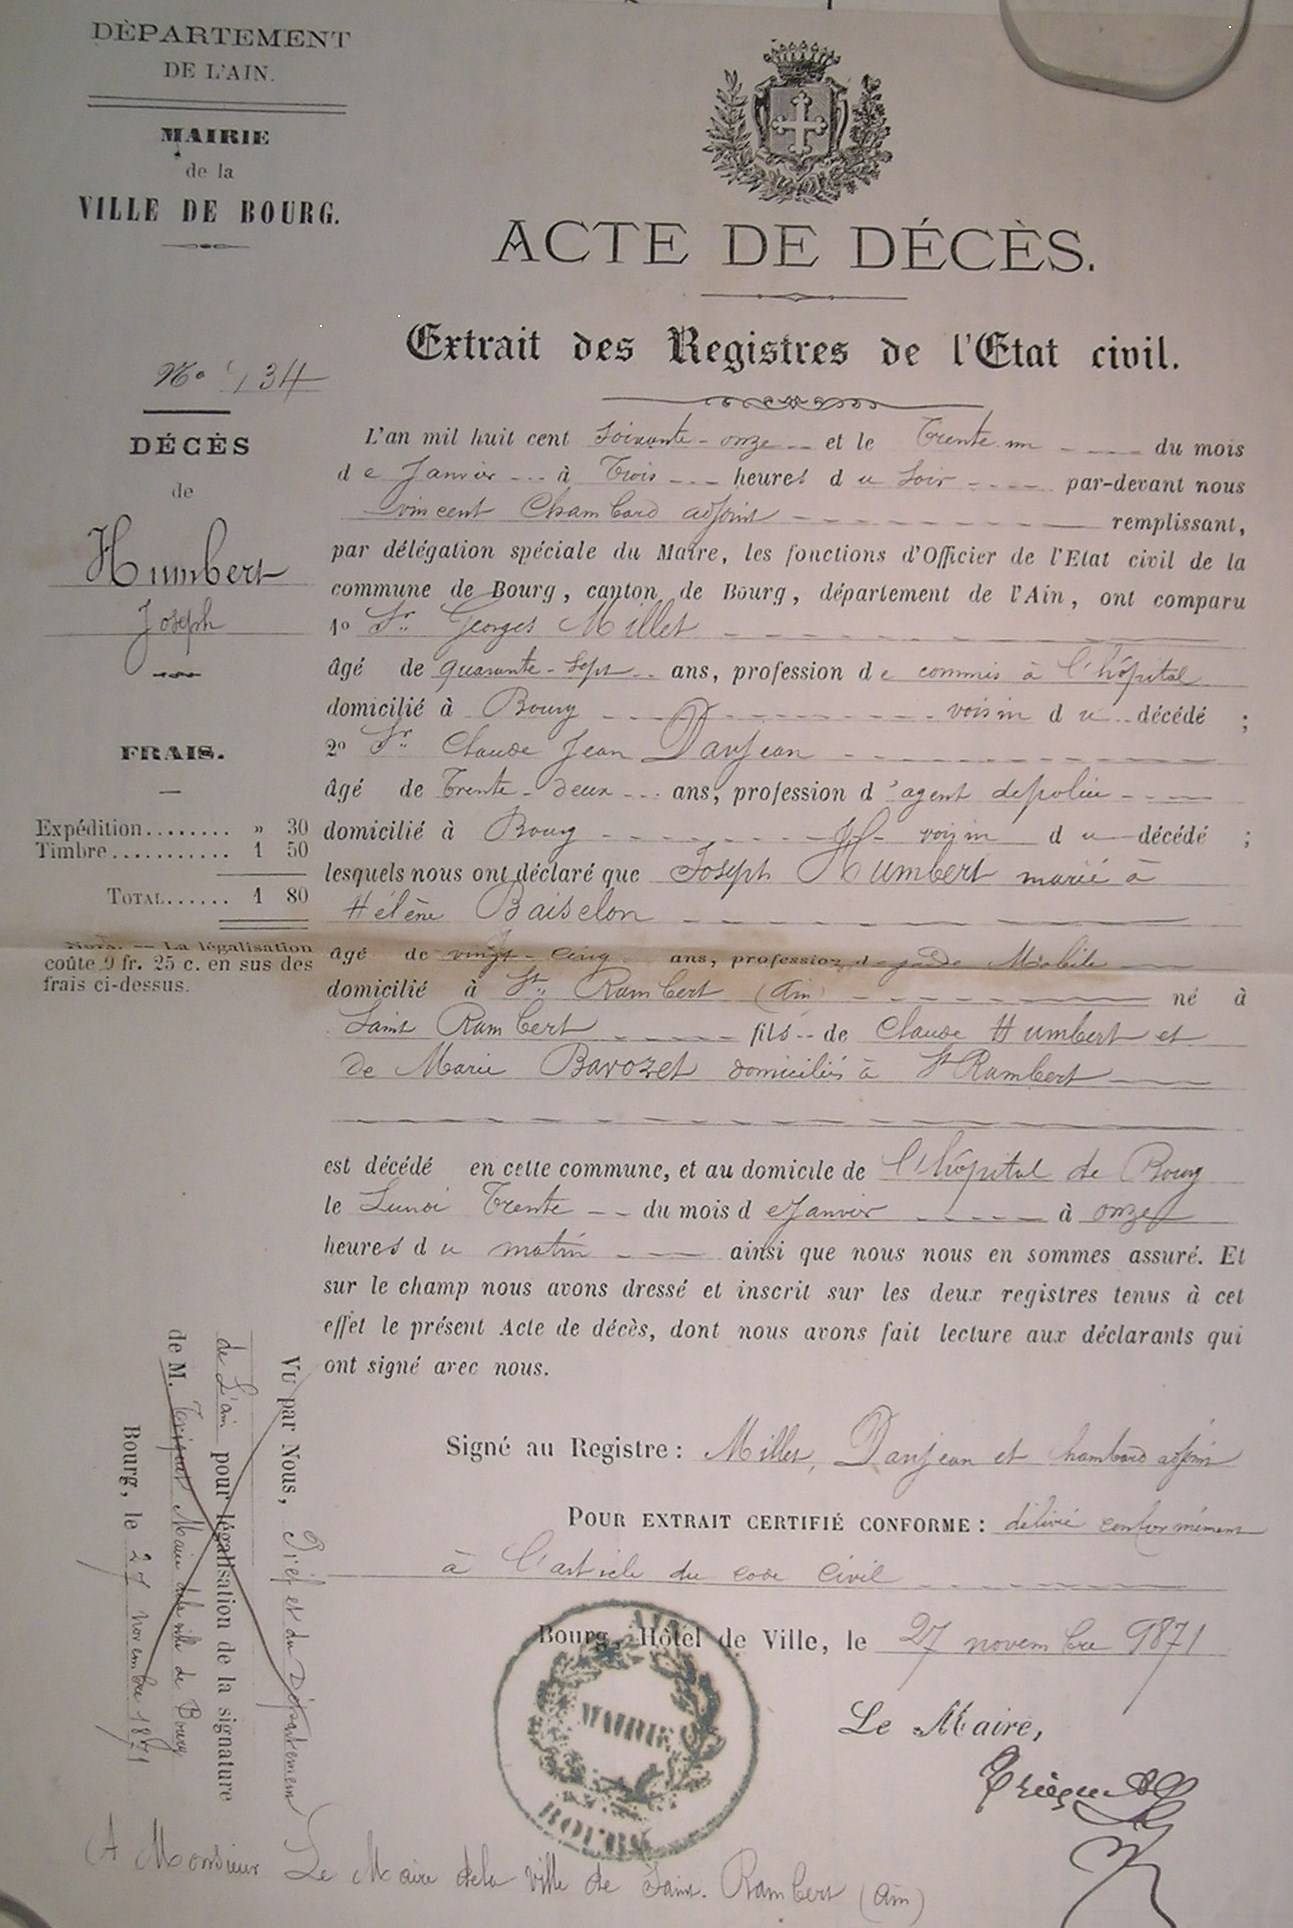 DÉPARTEMENT
DE L'AIN.
MAIRIE
de la
VILLE DE BOURG.
ACTE DE DÉCÈS.
Extrait des Registres de l'Etat civil.
No 134
DÉCÈS
de
Humbert
Joseph
FRAIS.
Expédition........ » 30
Timbre........... 1 50
TOTAL...... 1 80
NOTA. — La légalisation
coûte 0 fr. 25 c. en sus des
frais ci-dessus.
L'an mil huit cent soixante-onze et le Trente un du mois
de Janvier à Trois heures du soir par-devant nous
Vincent Chambard adjoint remplissant,
par délégation spéciale du Maire, les fonctions d'Officier de l'Etat civil de la
commune de Bourg, canton de Bourg, département de l'Ain, ont comparu
1o Sr Georges Millet
âgé de quarante-sept ans, profession de commis à l'hôpital
domicilié à Bourg voisin du décédé ;
2o Sr Claude Jean Danjean
âgé de Trente-deux ans, profession d'agent de police
domicilié à Bourg voisin du décédé ;
lesquels nous ont déclaré que Joseph Humbert marié à
Hélène Baiselon
âgé de vingt-cinq ans, profession de garde Mobile
domicilié à St Rambert (Ain) né à
Saint Rambert fils de Claude Humbert et
de Marie Bavozet domiciliés à St Rambert
est décédé en cette commune, et au domicile de l'hôpital de Bourg
le Lundi Trente du mois de Janvier à onze
heures du matin ainsi que nous nous en sommes assuré. Et
sur le champ nous avons dressé et inscrit sur les deux registres tenus à cet
effet le présent Acte de décès, dont nous avons fait lecture aux déclarants qui
ont signé avec nous.
Signé au Registre : Millet, Danjean et Chambard adjoint
POUR EXTRAIT CERTIFIÉ CONFORME : délivré conformément
à l'article du code civil
Bourg, Hôtel de Ville, le 27 novembre 1871
Le Maire,
AIN
MAIRIE
BOURG
Vu par Nous, Préfet du Département
de l'ain pour légalisation de la signature
de M. Maire de la ville de Bourg
Bourg, le 27 novembre 1871
A Monsieur Le Maire de la ville de Saint-Rambert (ain)